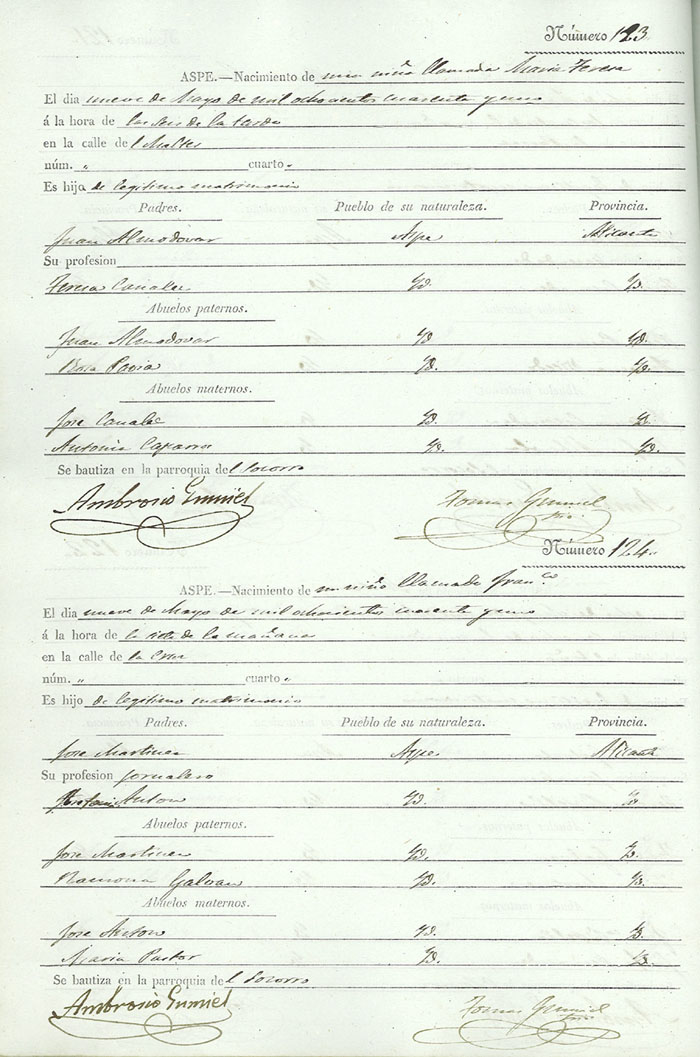 Número 123.
ASPE.—Nacimiento de una niña llamada Maria Teresa
El dia nueve de Mayo de mil ochocientos cuarenta y uno
á la hora de las seis de la tarde
en la calle de
núm. „ cuarto „
Es hija de legitimo matrimonio
Padres. Pueblo de su naturaleza. Provincia.
Juan Almodovar Aspe Alicante
Su profesion
Teresa Cañales Yd. Yd.
Abuelos paternos.
Juan Almodovar Yd Yd.
Rosa Pavia Yd. Yd.
Abuelos maternos.
Jose Canales Yd. Yd.
Antonia Caparros Yd. Yd.
Se bautiza en la parroquia del Socorro
Ambrosio Gumiel Tomas Gumiel
Número 124.
ASPE.—Nacimiento de un niño llamado Franco
El dia nueve de Mayo de mil ochocientos cuarenta y uno
á la hora de la siete de la mañana
en la calle de la Cruz
núm. „ cuarto „
Es hijo de legitimo matrimonio
Padres. Pueblo de su naturaleza. Provincia.
Jose Martinez Aspe Alicante
Su profesion jornalero
Anton Yd. Yd.
Abuelos paternos.
Jose Martinez Yd. Yd.
Ramona Galvan Yd. Yd.
Abuelos maternos.
Jose Anton Yd. Yd.
Maria Pastor Yd. Yd.
Se bautiza en la parroquia del Socorro
Ambrosio Gumiel Tomas Gumiel